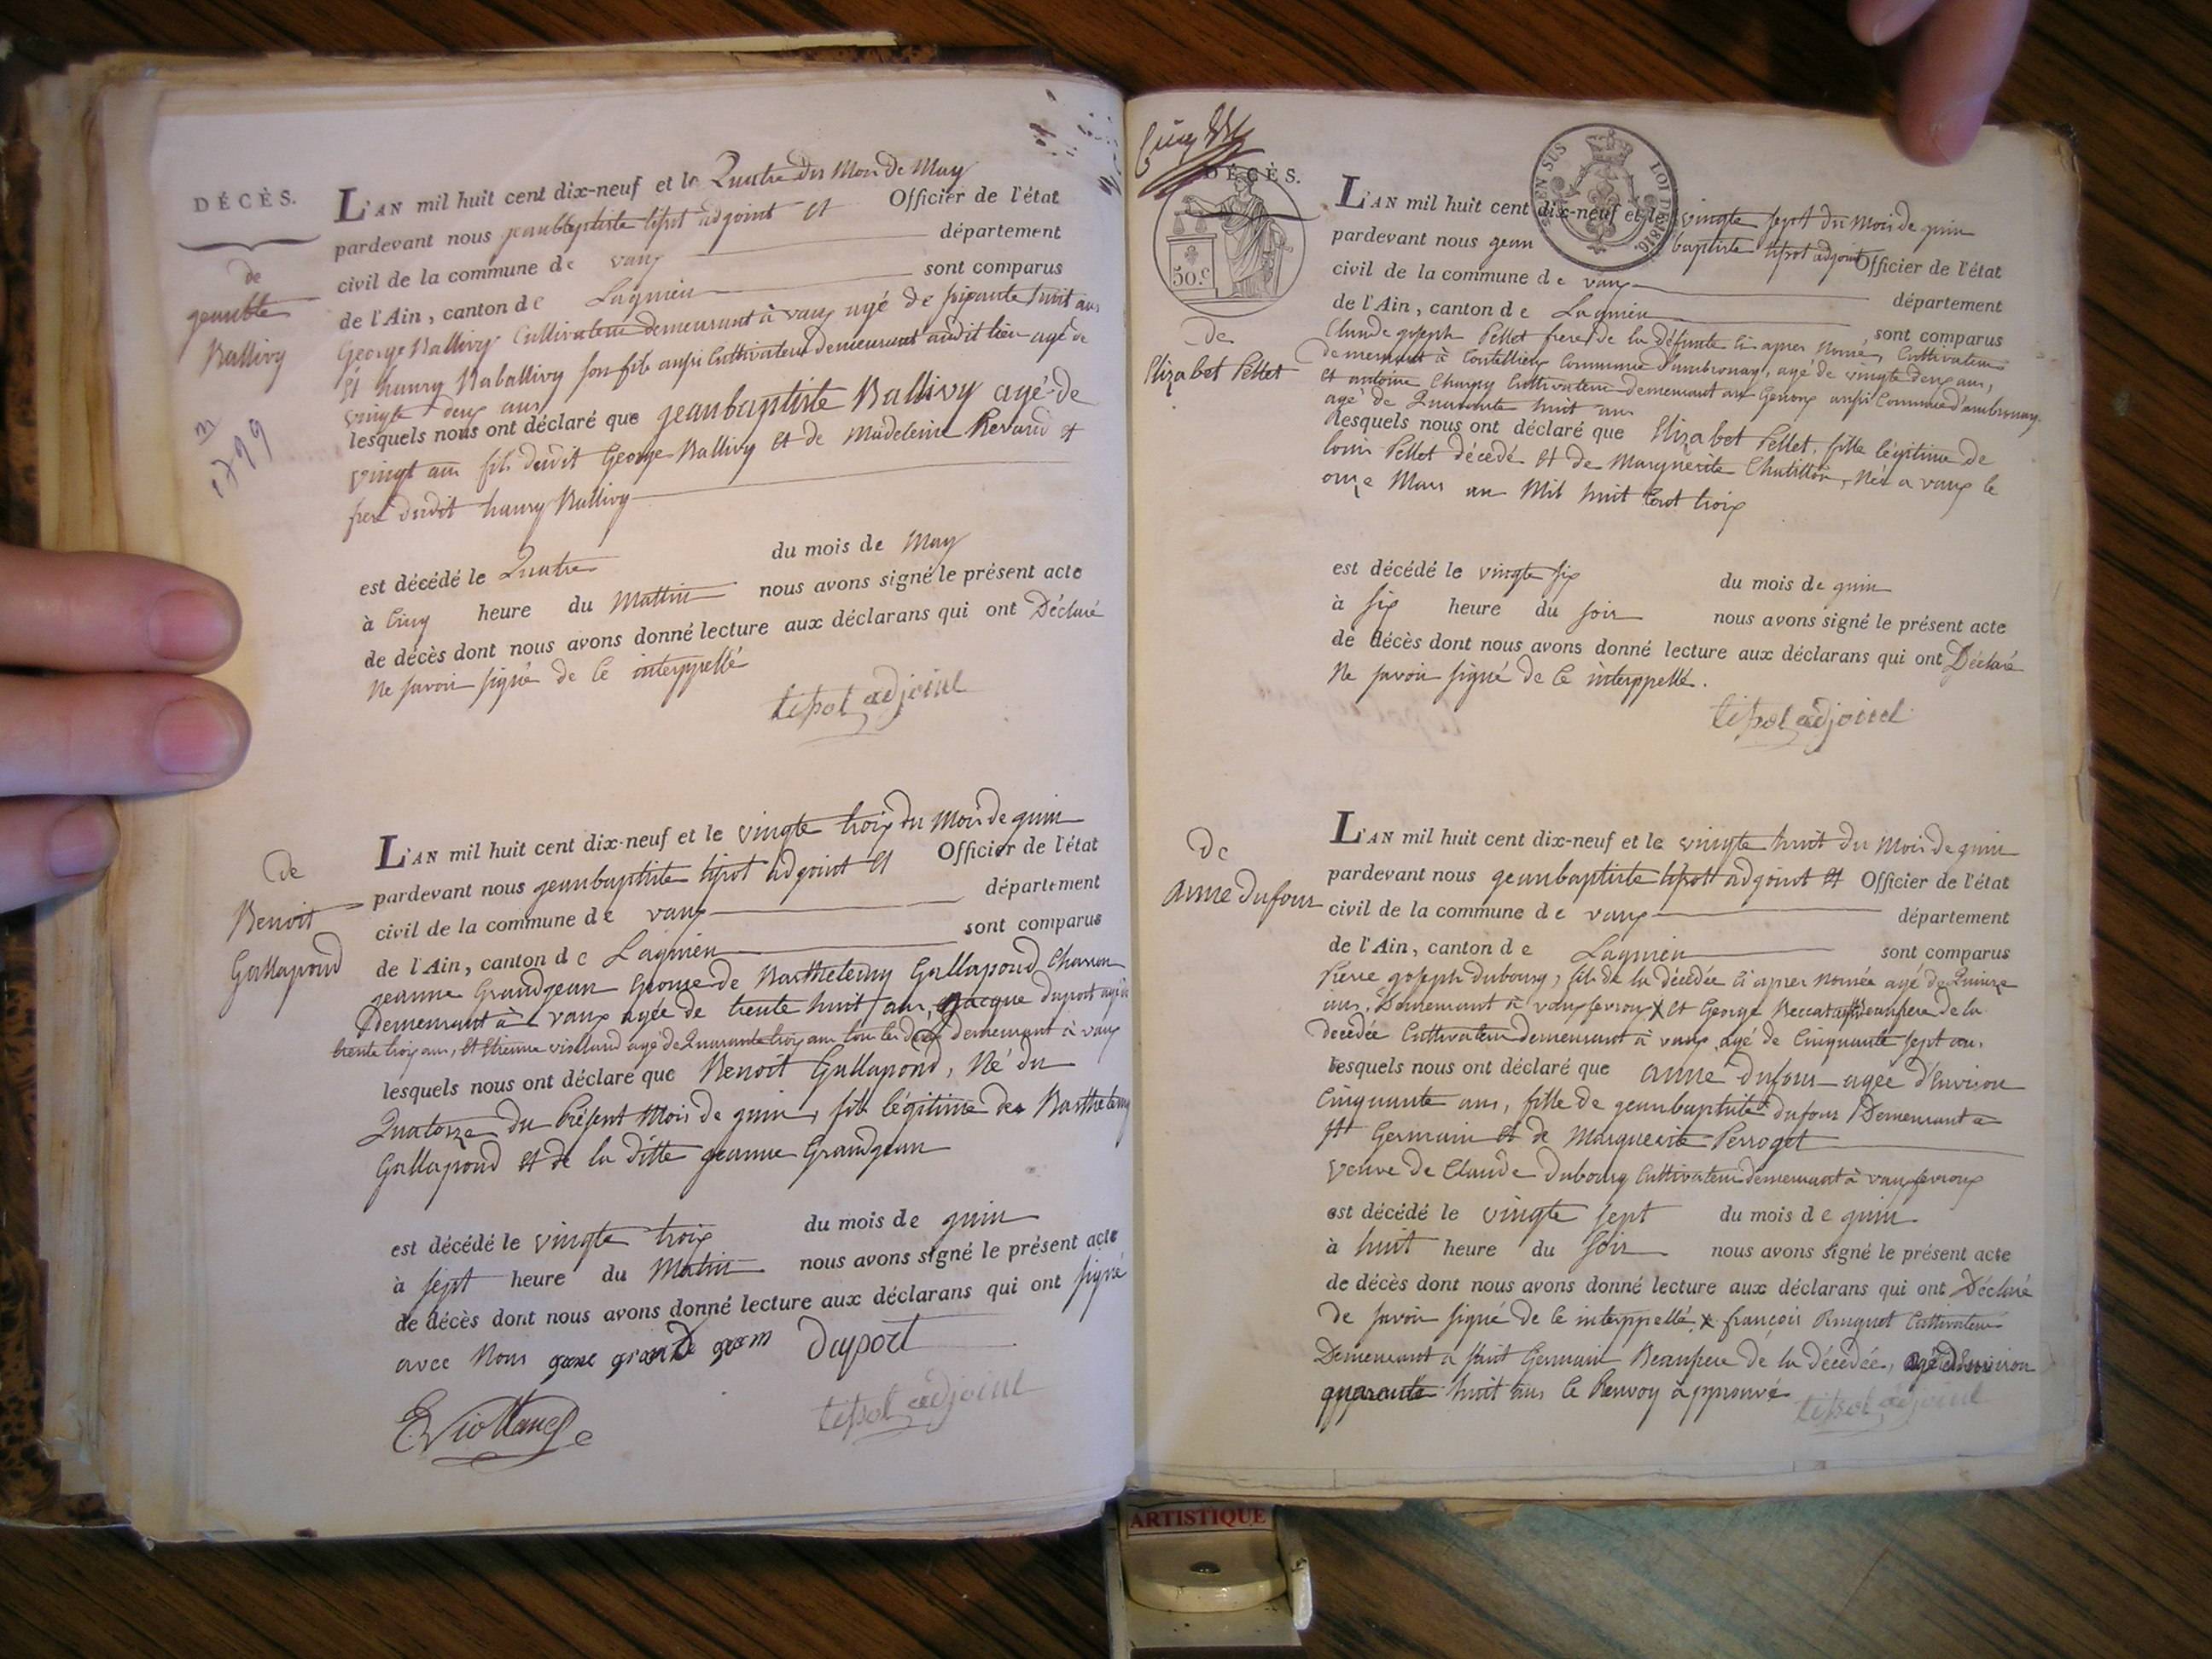 DÉCÈS.
de
jeanbte
Ballivy
1799
L'AN mil huit cent dix-neuf et le Quatre du Mois de May
pardevant nous jeanbaptiste tipot adjoint et Officier de l'état
civil de la commune de vaux département
de l'Ain, canton de Lagnieu sont comparus
George Ballivy Cultivateur demeurant à vaux agé de soixante huit ans
Et haury Ballivy son fils aussi Cultivateur demeurant audit lieu agé de
vingte deux ans
lesquels nous ont déclaré que jeanbaptiste Ballivy agé de
vingt ans fils dudit George Ballivy et de Madeleine Revand et
frere dudit haury Ballivy
est décédé le Quatre du mois de May
à Cinq heure du Mattin nous avons signé le présent acte
de décès dont nous avons donné lecture aux déclarans qui ont Déclaré
Ne savoir signé de ce interppellé
tipot adjoint
de
Benoit
Gallapond
L'AN mil huit cent dix-neuf et le vingte trois du Mois de juin
pardevant nous jeanbaptiste tipot adjoint et Officier de l'état
civil de la commune de vaux département
de l'Ain, canton de Lagnieu sont comparus
jeanne Grandjean épouse de Barthelemy Gallapond Charron
Demeurant à vaux agée de trente huit ans, jacque duport agé de
trente trois ans, et Etienne violland agé de Quarante trois ans tous les deux demeurant à vaux
lesquels nous ont déclaré que Benoit Gallapond, Né du
Quatorze du Présent Mois de juin, fils légitime de Barthelemy
Gallapond et de la ditte jeanne Grandjean
est décédé le vingte trois du mois de juin
à sept heure du Matin nous avons signé le présent acte
de décès dont nous avons donné lecture aux déclarans qui ont signé
avec Nous Duport
E Violland
tipot adjoint
DÉCÈS.
50.c
EN SUS LOI DE 1816.
de
Elizabet Pellet
L'AN mil huit cent dix-neuf et le vingte sept du Mois de juin
pardevant nous jean baptiste tipot adjoint Officier de l'état
civil de la commune de vaux département
de l'Ain, canton de Lagnieu sont comparus
Claude joseph Pellet frere de la défunte Ci apres Nomé, Cultivateur
demeurant à Coutelieu Commune d'ambronay, agé de vingte deux ans,
et antoine Chargy Cultivateur demeurant aux Genoux aussi Commune d'ambronay
agé de Quarante huit ans
lesquels nous ont déclaré que Elizabet Pellet, fille légitime de
louis Pellet décédé et de Marguerite Chatillon, Née a vaux le
onze Mars an Mil huit Cent trois
est décédé le vingte six du mois de juin
à six heure du soir nous avons signé le présent acte
de décès dont nous avons donné lecture aux déclarans qui ont Déclaré
Ne savoir signé de ce interppellé.
tipot adjoint
de
anne dufour
L'AN mil huit cent dix-neuf et le vingte huit du Mois de juin
pardevant nous jeanbaptiste tipot adjoint et Officier de l'état
civil de la commune de vaux département
de l'Ain, canton de Lagnieu sont comparus
Pierre joseph Dubourg, fils de la décédée Ci apres Nomée agé de Quinze
ans, Demeurant à vaux fevroux X et George Beccat Beaupere de la
decedée Cultivateur demeurant à vaux agé de Cinquante sept ans.
lesquels nous ont déclaré que anne dufour agée d'Environ
Cinquante ans, fille de jeanbaptiste dufour Demeurant a
St Germain et de Marguerite Perroget
veuve de Claude Dubourg Cultivateur demeurant à vaux fevroux
est décédé le vingte sept du mois de juin
à huit heure du soir nous avons signé le présent acte
de décès dont nous avons donné lecture aux déclarans qui ont Déclaré
de savoir signé de ce interppellé X françois Ringuet Cultivateur
Demeurant a saint Germain Beaufrere de la décédée, agé d'environ
quarante huit ans le Renvoy approuvé
tipot adjoint
ARTISTIQUE